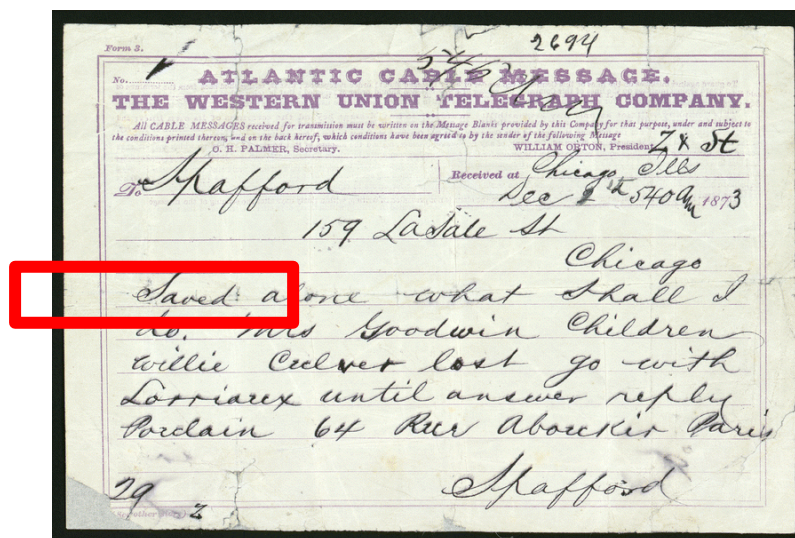 Form 3.
2694
No.
ATLANTIC CABLE MESSAGE.
THE WESTERN UNION TELEGRAPH COMPANY.
All CABLE MESSAGES received for transmission must be written on the Message Blanks provided by this Company for that purpose, under and subject to
the conditions printed thereon, and on the back hereof, which conditions have been agreed to by the sender of the following Message
O. H. PALMER, Secretary. WILLIAM ORTON, President.
To Spafford
Received at Chicago Ills
Dec 540 am 1873
159 LaSale St
Chicago
Saved alone what shall I
do. Mrs Goodwin Children
Willie Culver lost go with
Lorriaux until answer reply
Porclain 64 Rue Aboukir Paris
Spafford
29
2